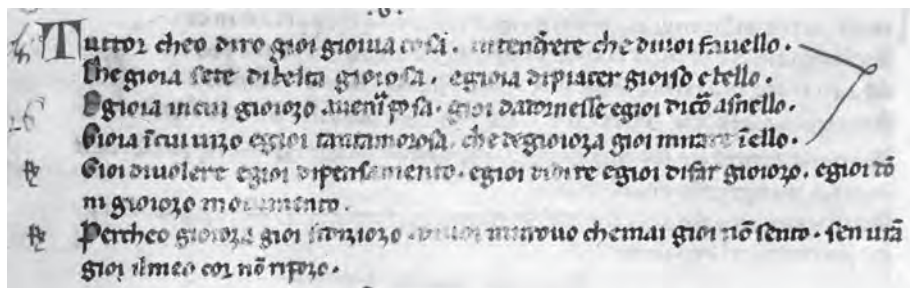 Tuttor cheo diro gioi gioiua cosa . intend̄rete che diuoi fauello .
Che gioia sete dibelta gioiosa . egioia dipiacer gioiso ebello .
Egioia incui gioiozo auenīposa . gioi dadornesse egioi dicō asnello .
Gioia īcui uizo egioi tantamorosa . che degioioza gioi mirare īello .
Gioi diuolere egioi dipensamento . egioi didire egioi difar gioiozo . egioi dō
ni gioiozo mouimento .
Percheo gioioza gioi sidiziozo . diuoi mitrouo chemai gioi nō sento . sen urā
gioi ilmeo cor nō ripozo .